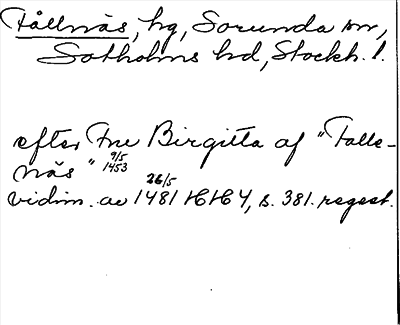 Fållnäs, hg, Sorunda sn,
Sotholms hd, Stockh. l.
efter Fru Birgitta af "Falle-
näs" 9/5 1453
26/5
vidim. av 1481 HH 4, s. 381. regest.